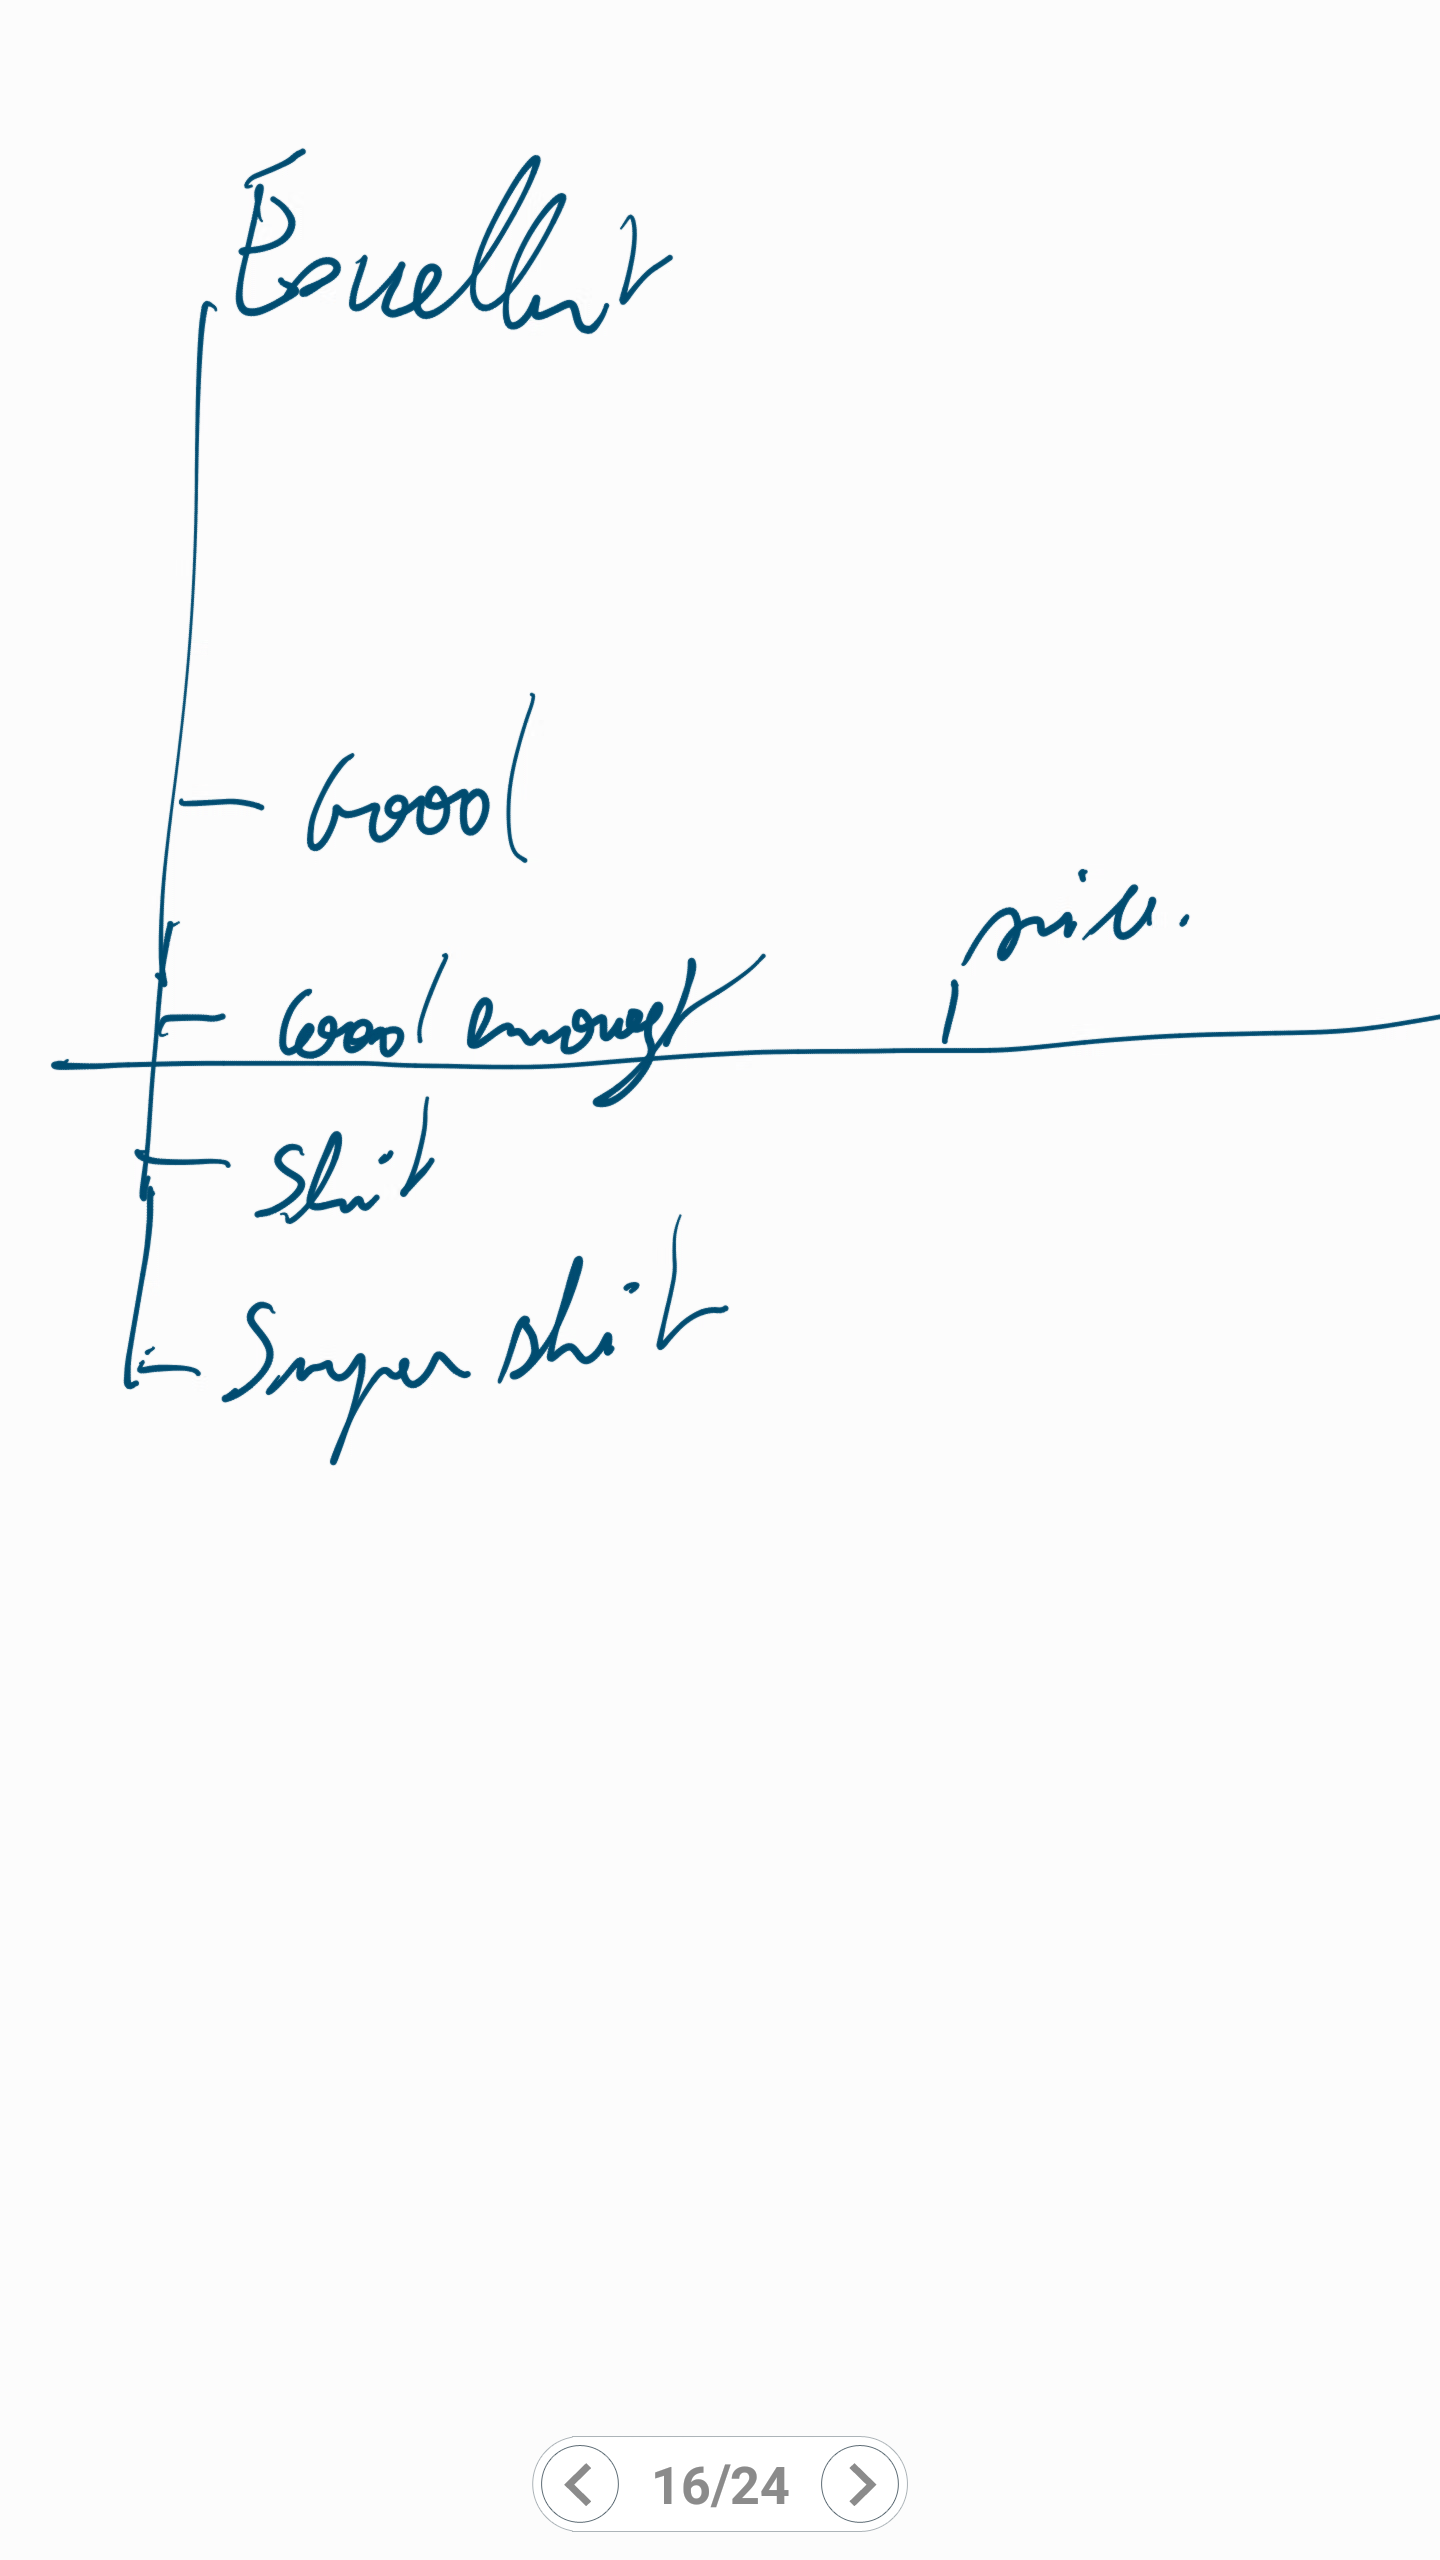 Excellent
Good
Good enough
Shit
Super shit
16/24